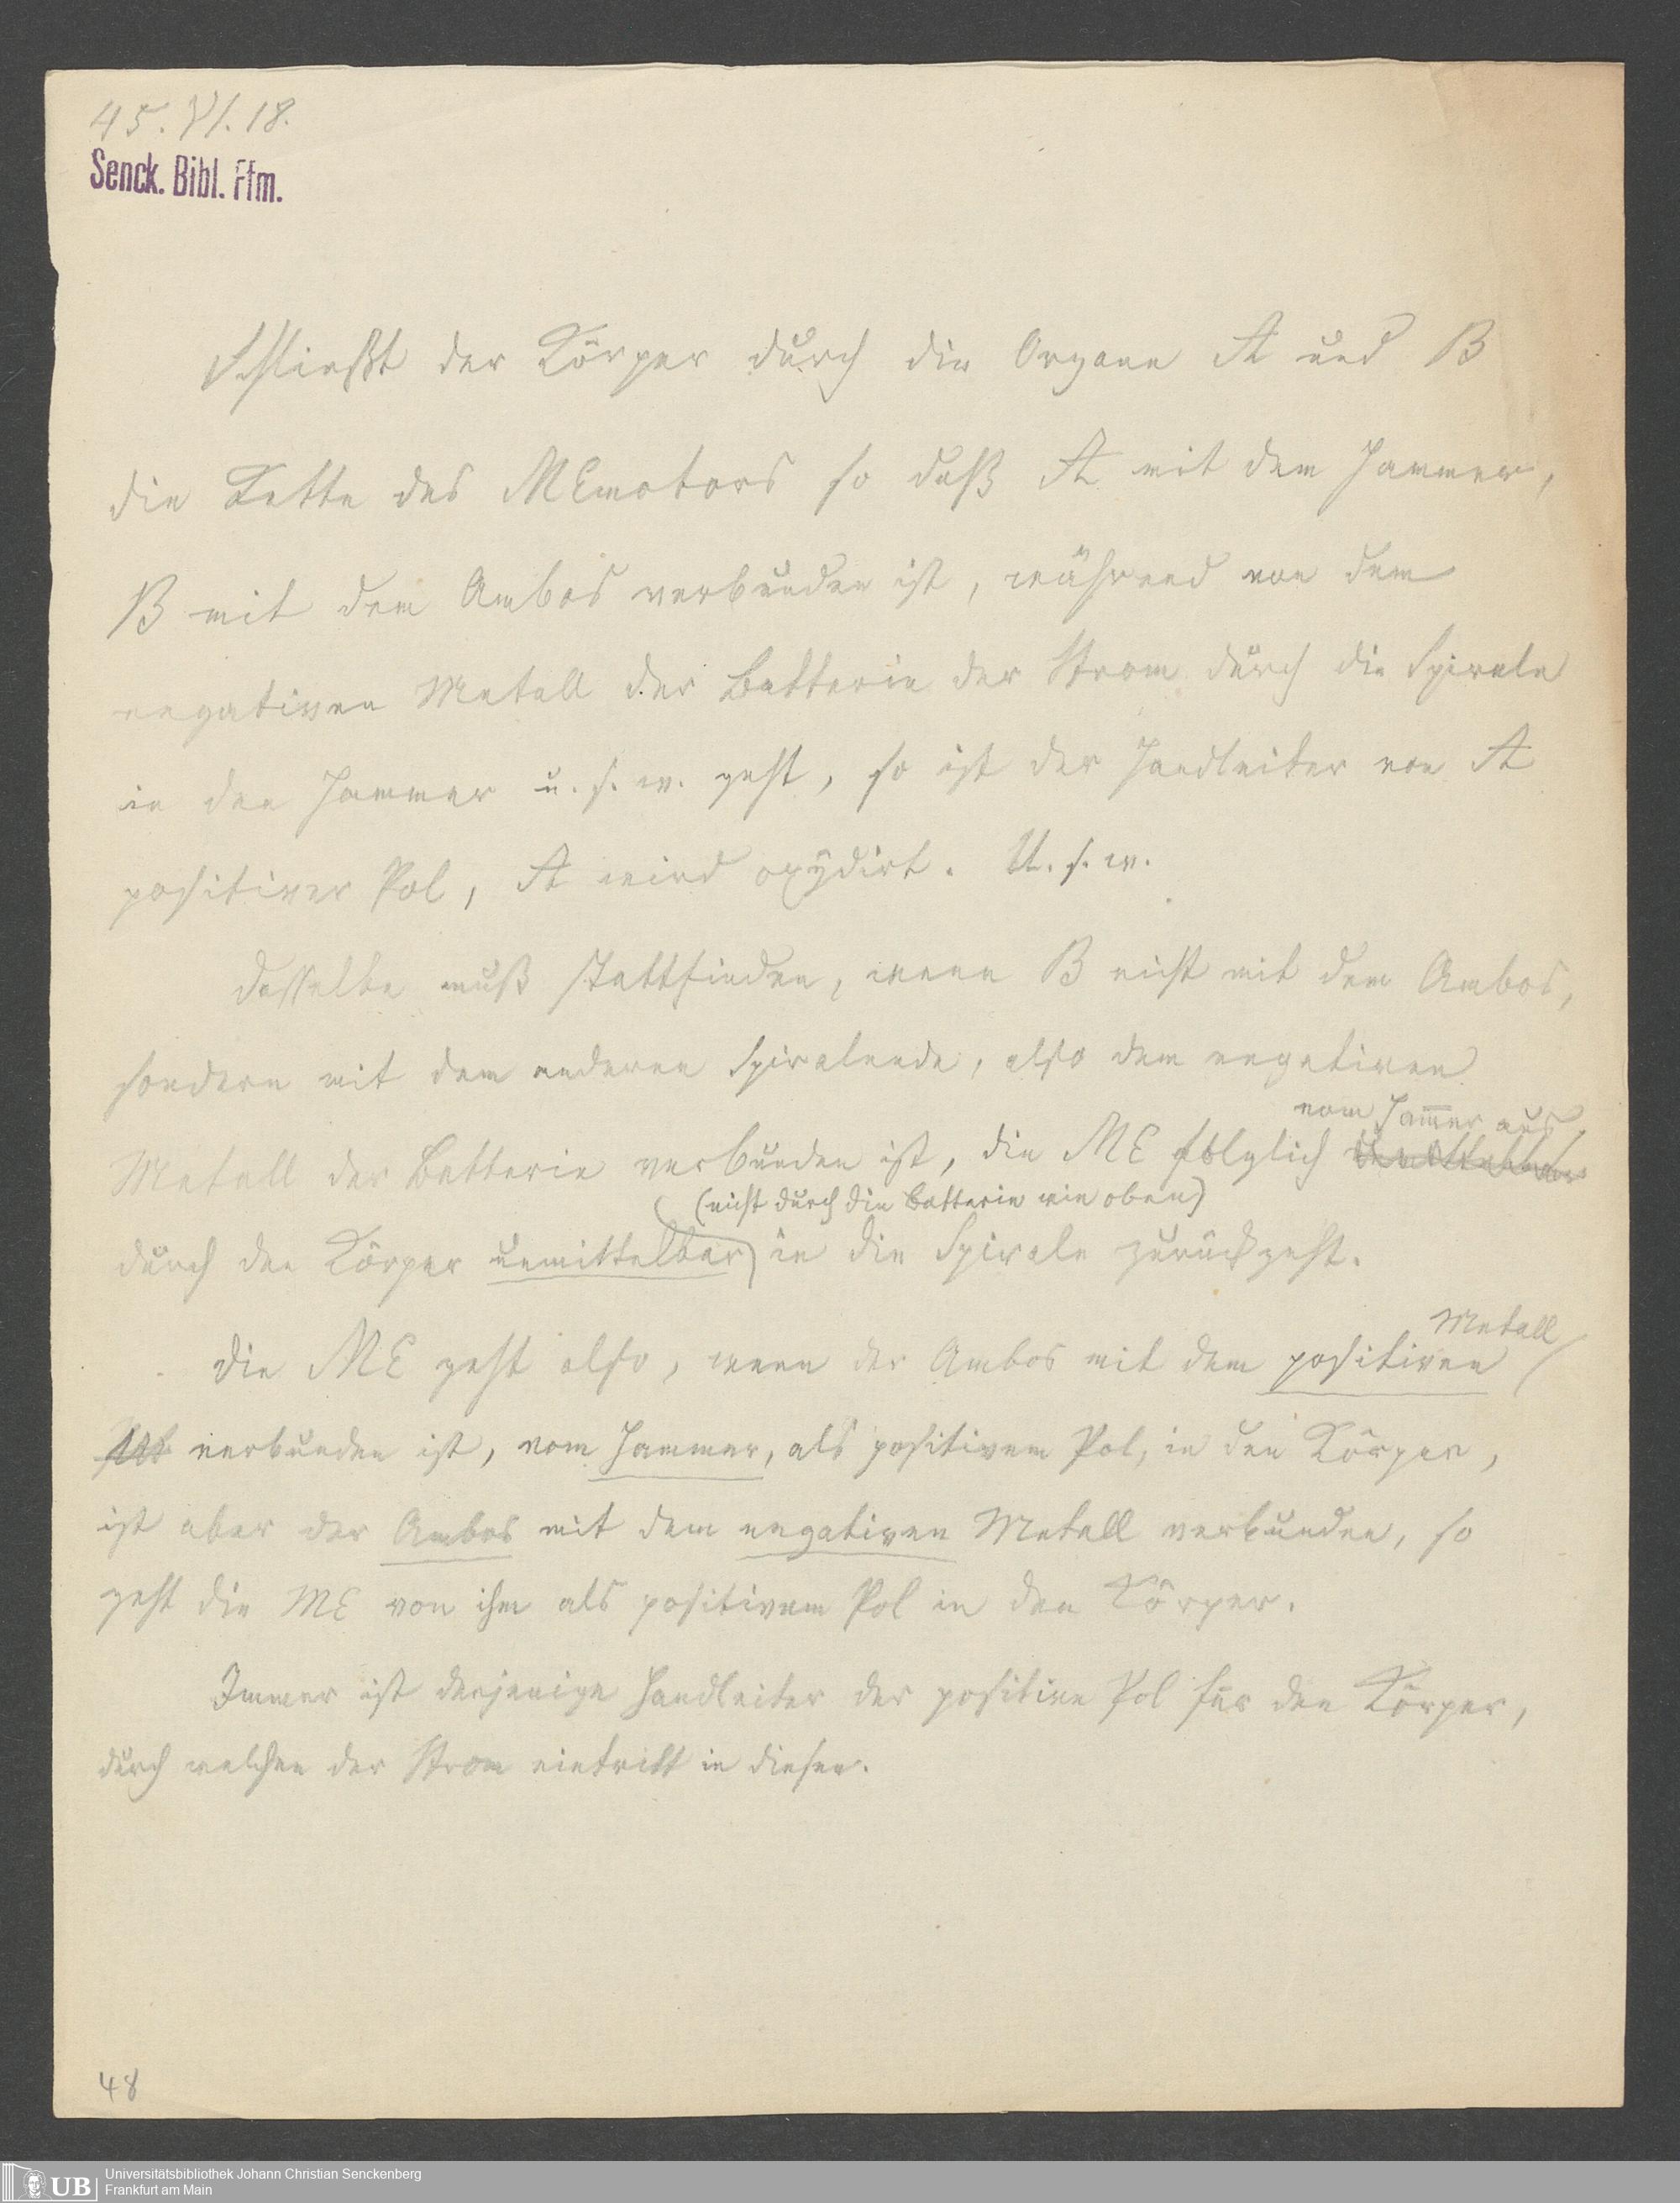 45.VI.18.
Senck. Bibl. Ffm.
Schließt der Körper durch die Organe A und B
die Kette des MEmotors so daß A mit dem Hammer,
B mit dem Ambos verbunden ist, während von dem
negativen Metall der Batterie der Strom durch die Spirale
in den Hammer u. s. w. geht, so ist der Handleiter von A
positiver Pol, A wird oxydirt. U. s. w.
Dasselbe muß stattfinden, wenn B nicht mit dem Ambos,
sondern mit dem anderen Spiralende, also dem negativen
vom Ham̅er aus
Metall der Batterie verbunden ist, die ME folglich unmittelbar
(nicht durch die Batterie wie oben)
durch den Körper unmittelbar in die Spirale zurückgeht.
Metall
Die ME geht also, wenn der Ambos mit dem positiven
Pol verbunden ist, vom Hammer, als positivem Pol, in den Körper,
ist aber der Ambos mit dem negativen Metall verbunden, so
geht die ME von ihm als positivem Pol in den Körper.
Immer ist derjenige Handleiter der positive Pol für den Körper,
durch welchen der Strom eintritt in diesen.
48
UB
Universitätsbibliothek Johann Christian Senckenberg
Frankfurt am Main